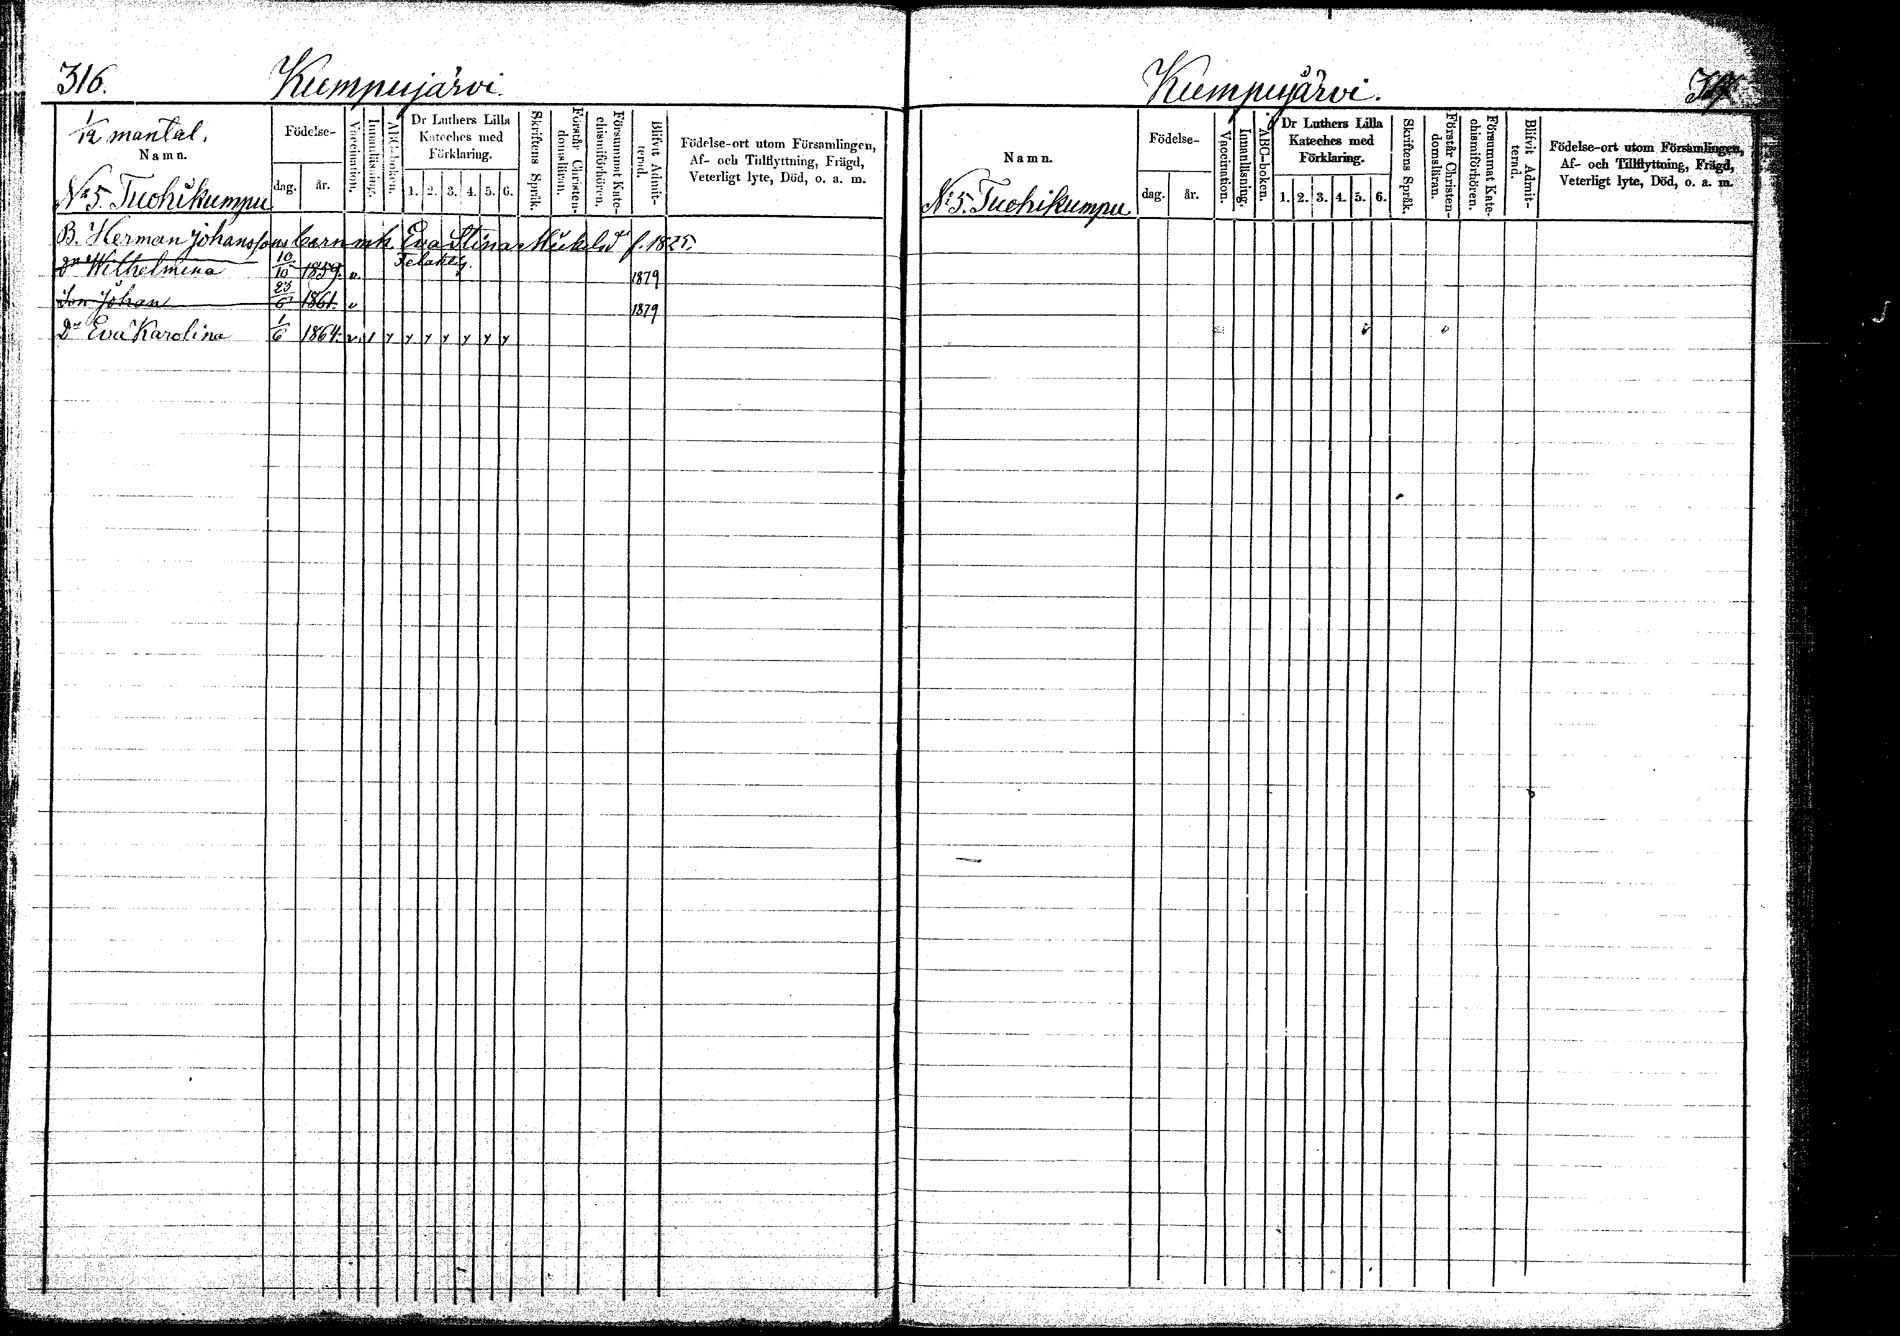 316. Kumpujärvi.
1/12 mantal.
Namn.
Födelse-
dag. år.
Vaccination.
Innanläsning.
ABC-boken.
Dr Luthers Lilla Kateches med Förklaring.
1. 2. 3. 4. 5. 6.
Skriftens Språk.
Förstår Christendomsläran.
Försummat Katechismiförhören.
Blifvit Admitterad.
Födelse-ort utom Församlingen,
Af- och Tillflyttning, Frägd,
Veterligt lyte, Död, o. a. m.
N:5. Tuohikumpu
B. Herman Johanssons barn m h. Eva Stina f. 1825.
Dr Wilhelmina 10/10 1859. v 1879
Son Johan 23/6 1861. v 1879
Dr Eva Karolina 1/6 1864. v. 1 y y y y y y y
Kumpujärvi.
Namn.
Födelse-
dag. år.
Vaccination.
Innanläsning.
ABC-boken.
Dr Luthers Lilla Kateches med Förklaring.
1. 2. 3. 4. 5. 6.
Skriftens Språk.
Förstår Christendomsläran.
Försummat Katechismiförhören.
Blifvit Admitterad.
Födelse-ort utom Församlingen,
Af- och Tillflyttning, Frägd,
Veterligt lyte, Död, o. a. m.
N:5. Tuohikumpu